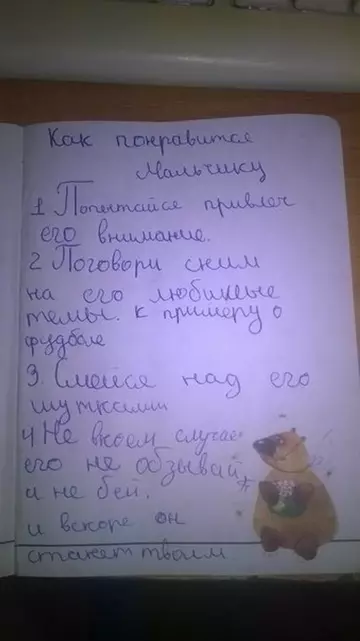 Как понравится
Мальчику
1 Попытайся привлеч
его внимание.
2 Поговори сним
на его любимые
темы. к примеру о
фудболе
3. Смейся над его
шутками
4 Не вкоем случае
его не обзывай
и не бей.
и вскоре он
станет твоим